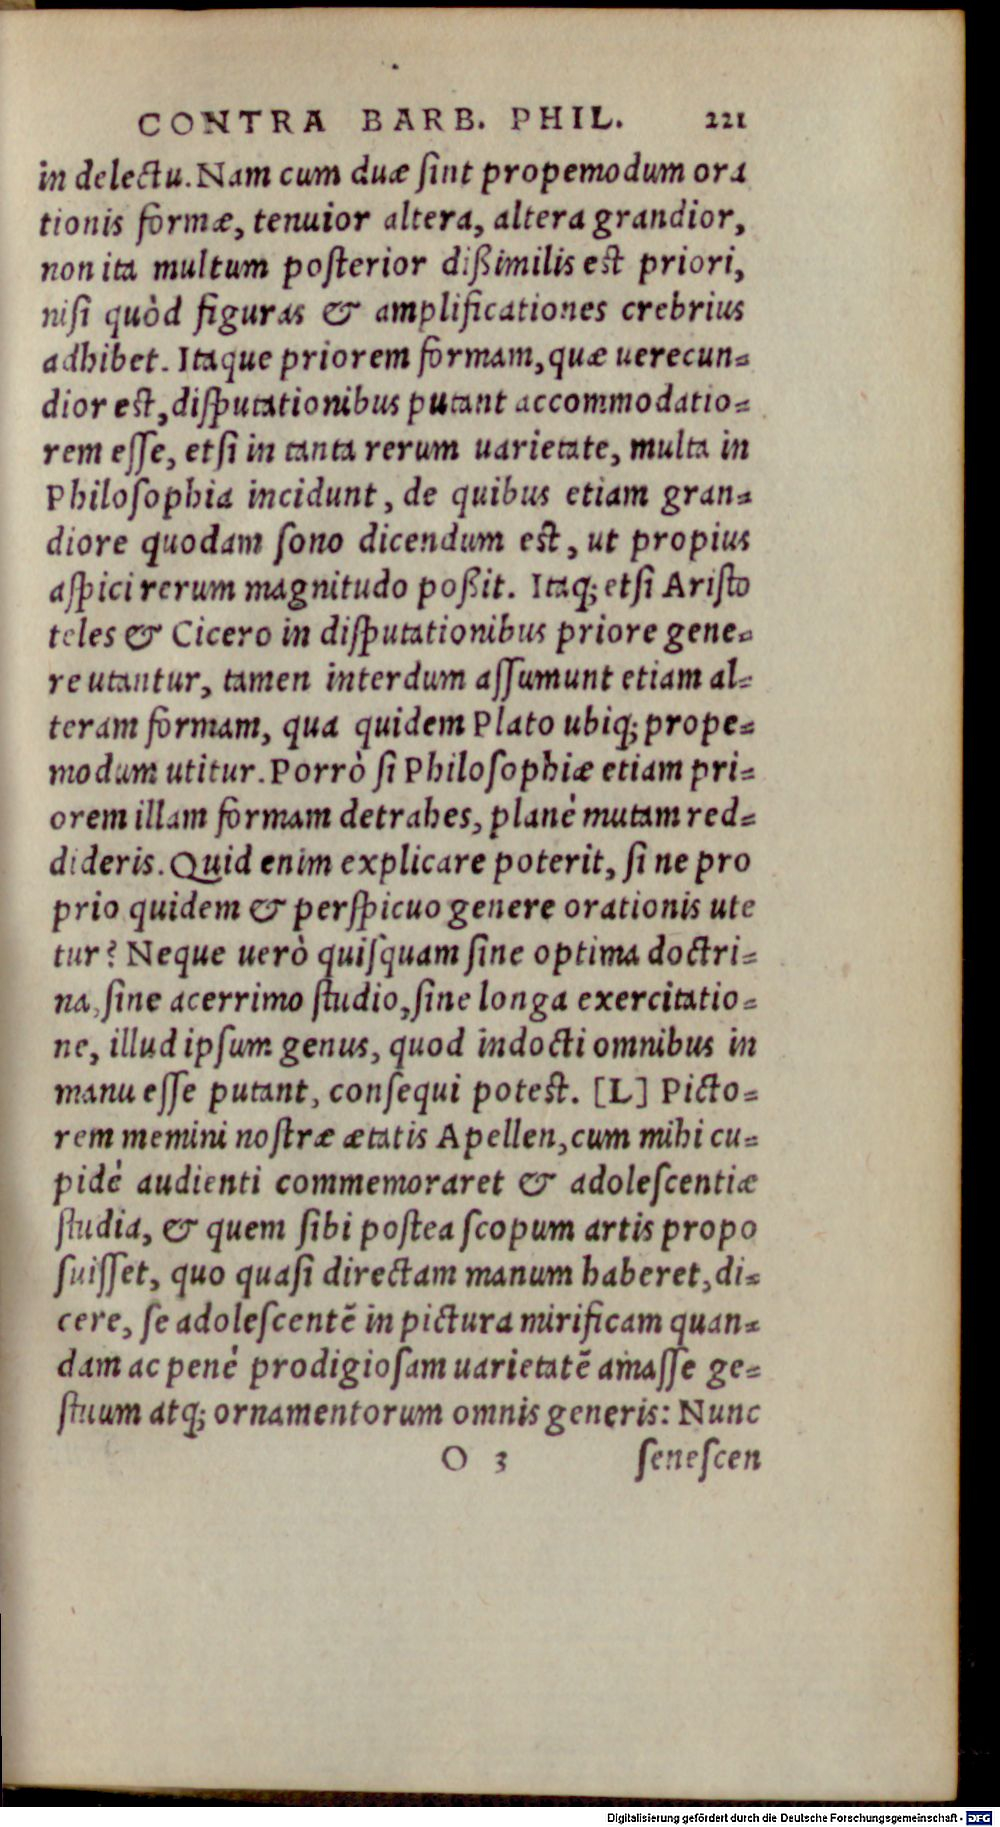 CONTRA BARB. PHIL. 221
in delectu. Nam cum duæ ſint propemodum ora
tionis formæ, tenuior altera, altera grandior,
non ita multum poſterior dißimilis est priori,
niſi quòd figuras & amplificationes crebrius
adhibet. Itaque priorem formam, quæ uerecun=
dior est, diſputationibus putant accommodatio=
rem eſſe, etſi in tanta rerum uarietate, multa in
Philoſophia incidunt, de quibus etiam gran=
diore quodam ſono dicendum est, ut propius
aſpici rerum magnitudo poßit. Itaq; etſi Ariſto
teles & Cicero in diſputationibus priore gene=
re utantur, tamen interdum aſſumunt etiam al=
teram formam, qua quidem Plato ubiq; prope=
modum utitur. Porrò ſi Philoſophiæ etiam pri=
orem illam formam detrahes, planè mutam red=
dideris. Quid enim explicare poterit, ſi ne pro
prio quidem & perſpicuo genere orationis ute
tur? Neque uerò quiſquam ſine optima doctri=
na, ſine acerrimo ſtudio, ſine longa exercitatio=
ne, illud ipſum genus, quod indocti omnibus in
manu eſſe putant, conſequi potest. [L] Picto=
rem memini noſtræ ætatis Apellen, cum mihi cu=
pidè audienti commemoraret & adoleſcentiæ
ſtudia, & quem ſibi poſtea ſcopum artis propo
ſuiſſet, quo quaſi directam manum haberet, di=
cere, ſe adoleſcentē in pictura mirificam quan=
dam ac penè prodigioſam uarietatē amaſſe ge=
ſtuum atq; ornamentorum omnis generis: Nunc
O 3 ſeneſcen
Digitalisierung gefördert durch die Deutsche Forschungsgemeinschaft - DFG